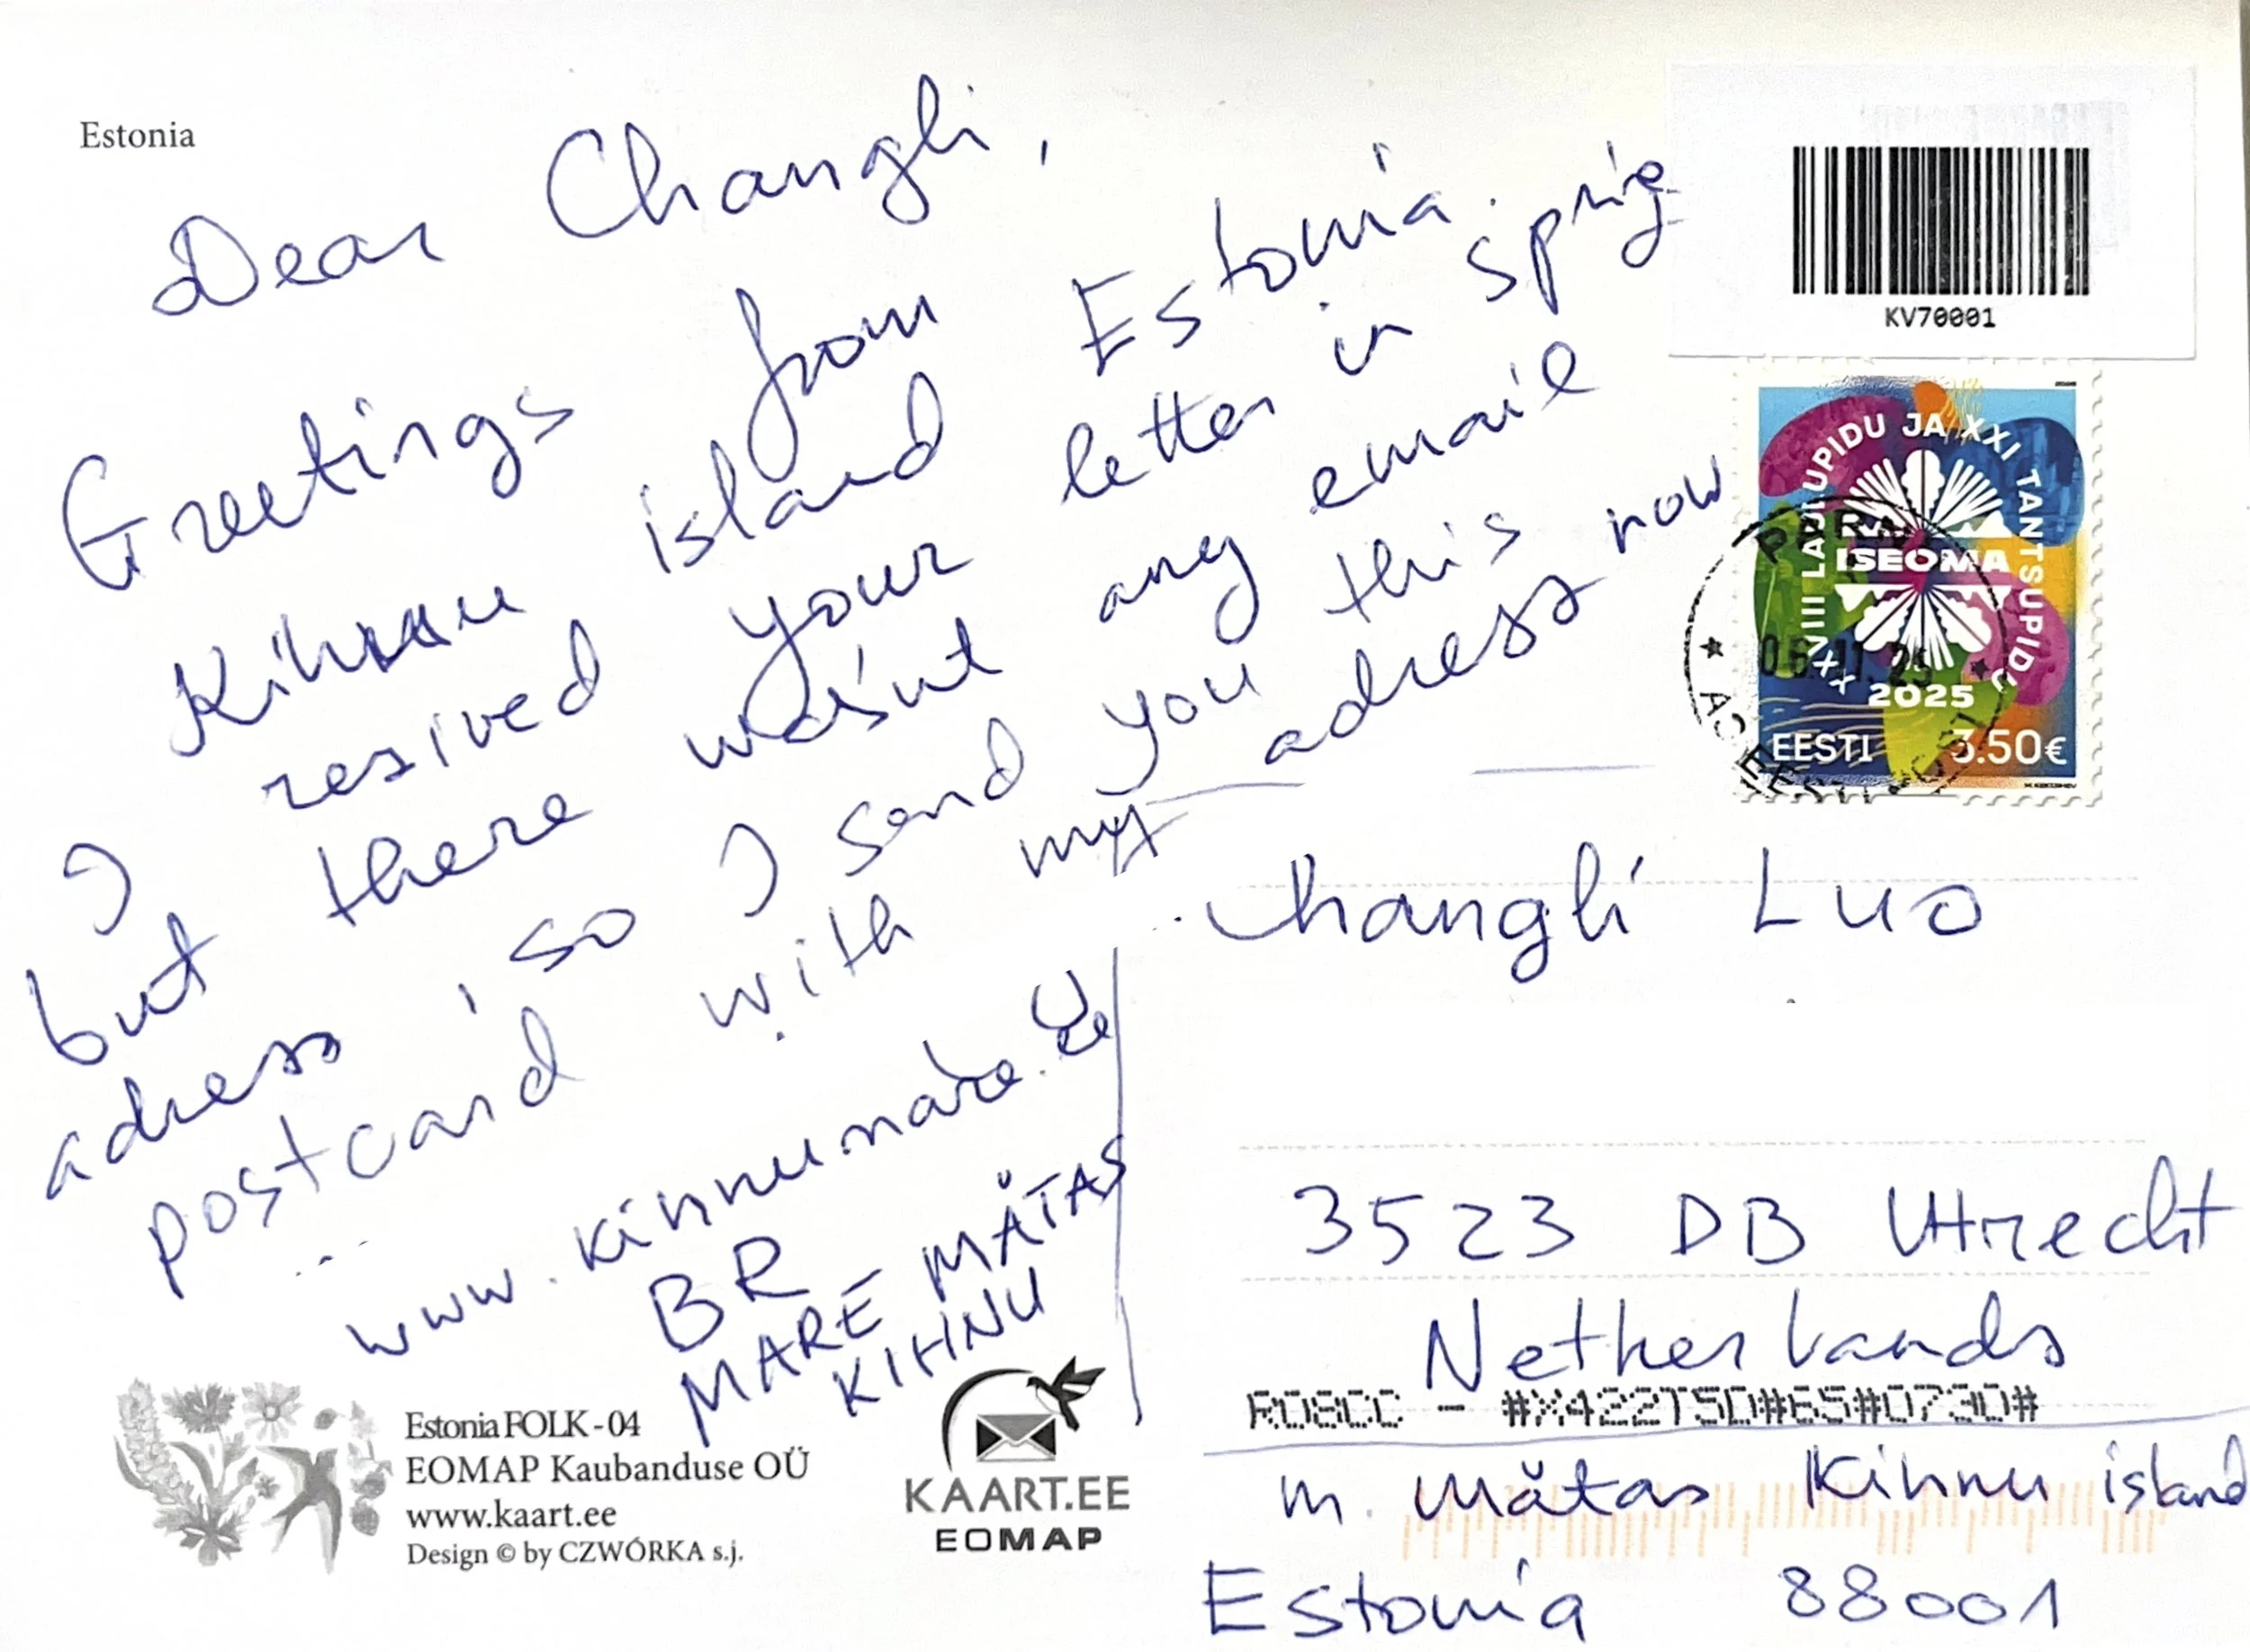 Estonia
Dear Changli,
Greetings from
Kihnu island Estonia.
I resived your letter in sprig
but there wasnt any email
adress, so I send you this
postcard with my adress now
www.kihnumare.ee
BR
MARE MÄTAS
KIHNU
KV70001
XXVIII LAULUPIDU JA XXI TANTSUPIDU
ISEOMA
2025
EESTI 3.50€
Changli Luo
3523 DB Utrecht
Netherlands
M. Mätas Kihnu island
Estonia 88001
Estonia FOLK - 04
EOMAP Kaubanduse OÜ
www.kaart.ee
Design © by CZWÓRKA s.j.
KAART.EE
EOMAP